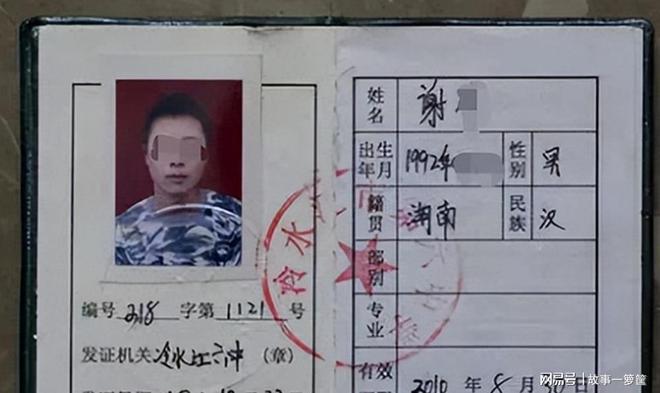 编号 218 字第 1121 号
发证机关 冷水江六中 (章)
姓名 谢
出生年月 1992年 性别 男
籍贯 湖南 民族 汉
部别
专业
有效 2010 年 8 月 30 日
冷水
网易号 | 故事一箩筐